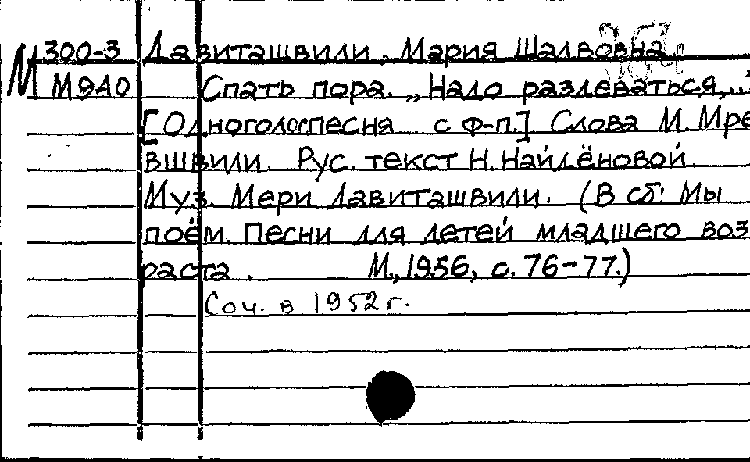 М 300-3 Давиташвили, Мария Шалвовна.
М940 Спать пора. „Надо раздеваться,..."
[Одноголос. песня с ф-п.] Слова М. Мре
вшвили. Рус. текст Н. Найдёновой.
Муз. Мери Давиташвили. (В сб: Мы
поём. Песни для детей младшего воз
раста. М., 1956, с. 76-77.)
Соч. в 1952 г.